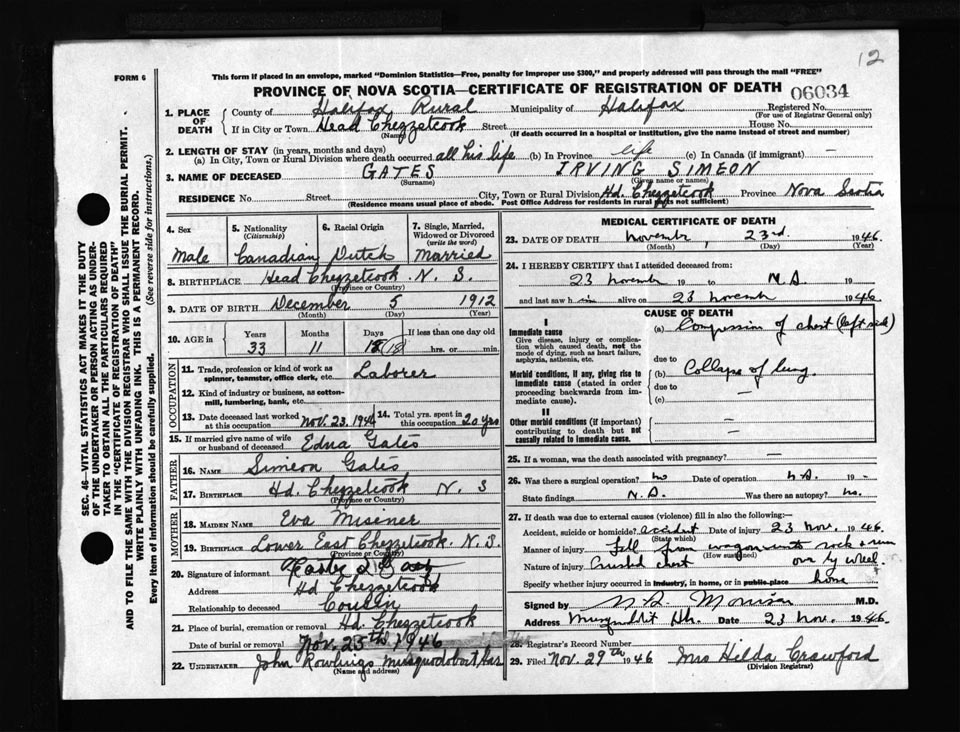 12
FORM 6
This form if placed in an envelope, marked "Dominion Statistics—Free, penalty for improper use $300," and properly addressed will pass through the mail "FREE"
PROVINCE OF NOVA SCOTIA—CERTIFICATE OF REGISTRATION OF DEATH 06034
SEC. 46—VITAL STATISTICS ACT MAKES IT THE DUTY
OF THE UNDERTAKER OR PERSON ACTING AS UNDER-
TAKER TO OBTAIN ALL THE PARTICULARS REQUIRED
IN THE "CERTIFICATE OF REGISTRATION OF DEATH"
AND TO FILE THE SAME WITH THE DIVISION REGISTRAR WHO SHALL ISSUE THE BURIAL PERMIT.
WRITE PLAINLY WITH UNFADING INK. THIS IS A PERMANENT RECORD.
Every item of information should be carefully supplied. (See reverse side for instructions.)
1. PLACE OF DEATH County of Halifax Rural Municipality of Halifax Registered No.
(For use of Registrar General only)
If in City or Town Head Chezzetcook Street House No.
(Name) (If death occurred in a hospital or institution, give the name instead of street and number)
2. LENGTH OF STAY (in years, months and days)
(a) In City, Town or Rural Division where death occurred all his life (b) In Province life (c) In Canada (if immigrant) —
3. NAME OF DECEASED GATES IRVING SIMEON
(Surname) (Given name or names)
RESIDENCE No. Street City, Town or Rural Division Hd. Chezzetcook Province Nova Scotia
(Residence means usual place of abode. Post Office Address for residents in rural parts not sufficient)
4. Sex Male
5. Nationality (Citizenship) Canadian
6. Racial Origin Dutch
7. Single, Married, Widowed or Divorced (write the word) Married
8. BIRTHPLACE Head Chezzetcook. N. S.
(Province or Country)
9. DATE OF BIRTH December 5 1912
(Month) (Day) (Year)
10. AGE in Years 33 Months 11 Days 18 (18) If less than one day old hrs. or min.
OCCUPATION
11. Trade, profession or kind of work as spinner, teamster, office clerk, etc. Laborer
12. Kind of industry or business, as cotton-mill, lumbering, bank, etc.
13. Date deceased last worked at this occupation Nov. 23. 1946 14. Total yrs. spent in this occupation 20 yrs
15. If married give name of wife or husband of deceased Edna Gates
FATHER
16. NAME Simeon Gates
17. BIRTHPLACE Hd. Chezzetcook N. S
(Province or Country)
MOTHER
18. MAIDEN NAME Eva Misener
19. BIRTHPLACE Lower East Chezzetcook. N. S.
(Province or Country)
20. Signature of informant
Address Hd Chezzetcook
Relationship to deceased Cousin
21. Place of burial, cremation or removal Hd. Chezzetcook
Date of burial or removal Nov. 25th 1946
22. UNDERTAKER John Rowlings Musquodoboit Har
(Name and address)
MEDICAL CERTIFICATE OF DEATH
23. DATE OF DEATH November, 23rd. 1946.
(Month) (Day) (Year)
24. I HEREBY CERTIFY that I attended deceased from:
23 November 19 to N.A. 19
and last saw him alive on 23 November 1946
CAUSE OF DEATH
I
Immediate cause
Give disease, injury or complication which caused death, not the mode of dying, such as heart failure, asphyxia, asthenia, etc.
(a) Compression of chest (left side)
due to
Morbid conditions, if any, giving rise to immediate cause (stated in order proceeding backwards from immediate cause).
(b) Collapse of lung.
due to
(c) —
II
Other morbid conditions (if important) contributing to death but not causally related to immediate cause.
—
25. If a woman, was the death associated with pregnancy? —
26. Was there a surgical operation? no Date of operation N.A. 19 -
State findings N.A. Was there an autopsy? no.
27. If death was due to external causes (violence) fill in also the following:—
Accident, suicide or homicide? accident Date of injury 23 Nov. 1946.
(State which)
Manner of injury Fell from wagon onto rock & run
(How sustained)
Nature of injury Crushed chest over by wheel.
Specify whether injury occurred in industry, in home, or in public place home
Signed by Morrison M.D.
Address Hr. Date 23 Nov. 1946.
28. Registrar's Record Number
29. Filed Nov. 29th 1946 Mrs Hilda Crawford
(Division Registrar)